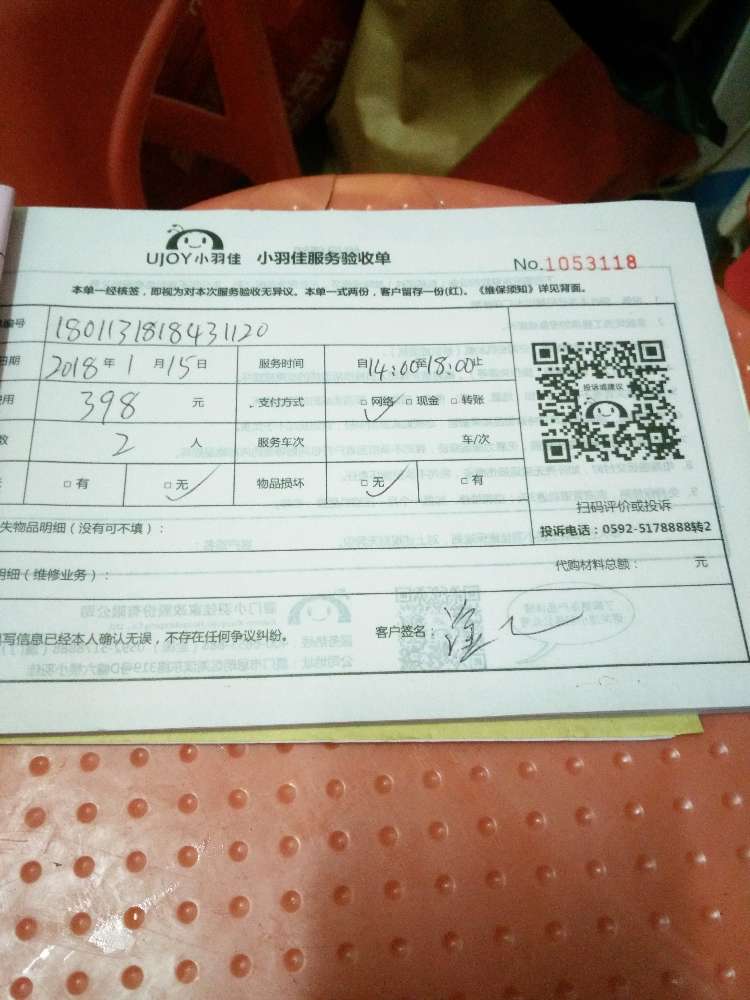 UJOY小羽佳 小羽佳服务验收单 No.1053118
本单一经核签，即视为对本次服务验收无异议。本单一式两份，客户留存一份(红)。《维保须知》详见背面。
编号 1801131818431120
日期 2018年1月15日 服务时间 自14:00至18:00止
用 398 元 支付方式 □网络 □现金 □转账
数 2 人 服务车次 车/次
□有 □无 物品损坏 □无 □有
投诉或建议
扫码评价或投诉
投诉电话：0592-5178888转2
失物品明细（没有可不填）：
明细（维修业务）： 代购材料总额： 元
写信息已经本人确认无误，不存在任何争议纠纷。 客户签名：